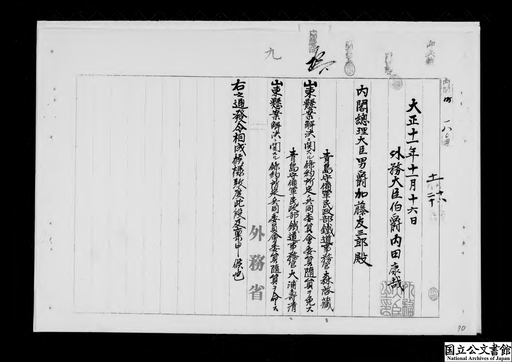 九
大正十一年十一月十六日
外務大臣伯爵內田康哉
內閣總理大臣男爵加藤友三郎殿
青島守備軍民政部鐵道事務官森啓藏
山東懸案解決ニ關スル條約所定共同委員會委員隨員ヲ免ス
青島守備軍民政部鐵道事務官大浦壽清
山東懸案解決ニ關スル條約所定共同委員會委員隨員ヲ命ス
右之通發令相成候樣致度此段及稟申候也
外務省
90
国立公文書館
National Archives of Japan